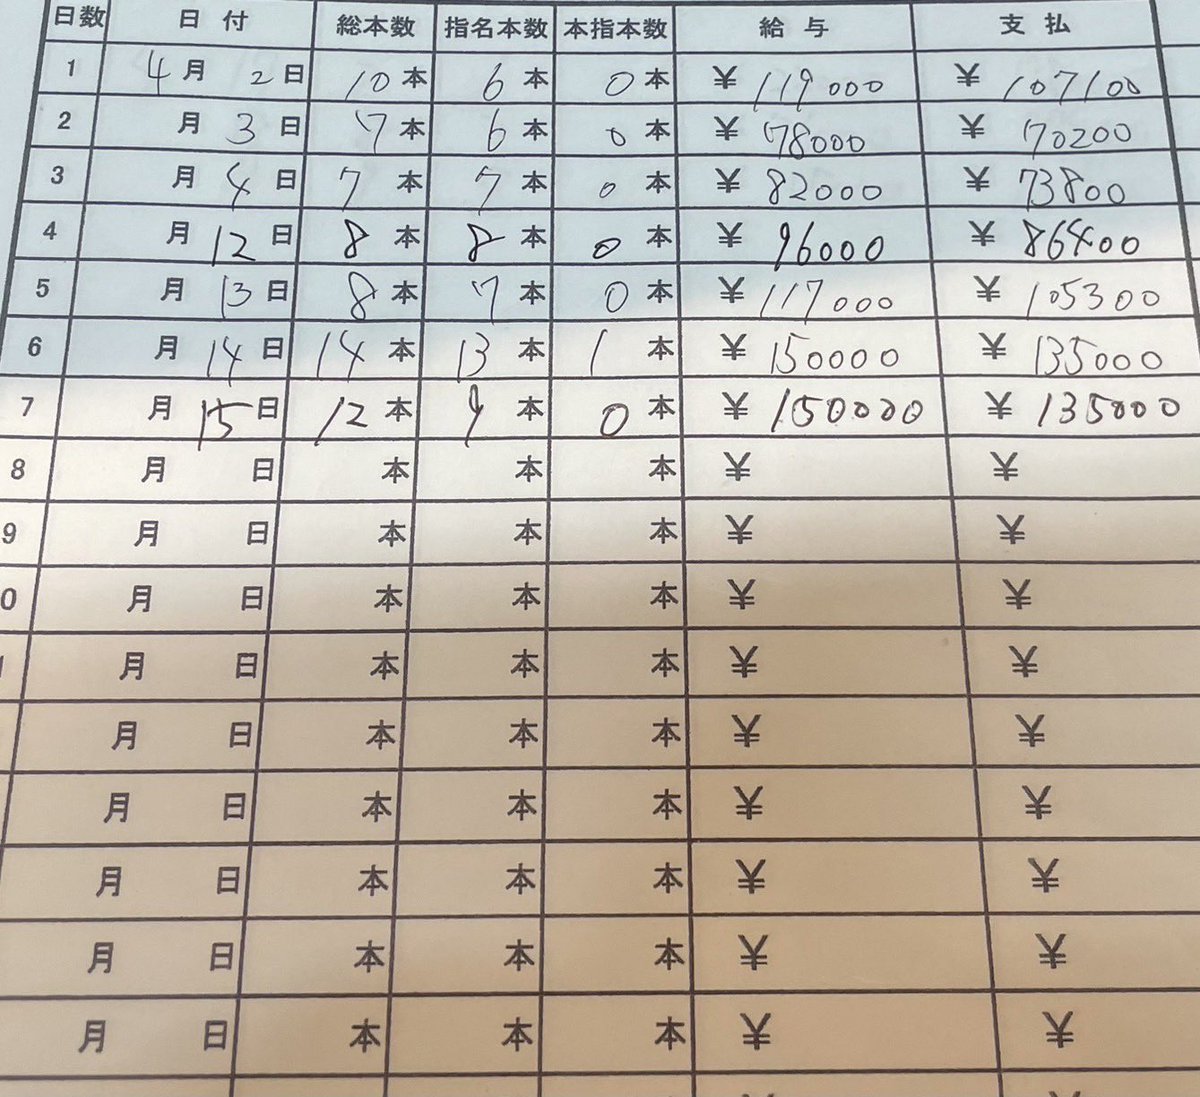 日数 日付 総本数 指名本数 本指本数 給与 支払
1 4月 2日 10本 6本 0本 ¥119000 ¥107100
2 月 3日 7本 6本 0本 ¥78000 ¥70200
3 月 4日 7本 7本 0本 ¥82000 ¥73800
4 月 12日 8本 8本 0本 ¥96000 ¥86400
5 月 13日 8本 7本 0本 ¥117000 ¥105300
6 月 14日 14本 13本 1本 ¥150000 ¥135000
7 月 15日 12本 9本 0本 ¥150000 ¥135000
8 月 日 本 本 本 ¥ ¥
9 月 日 本 本 本 ¥ ¥
0 月 日 本 本 本 ¥ ¥
月 日 本 本 本 ¥ ¥
月 日 本 本 本 ¥ ¥
月 日 本 本 本 ¥ ¥
月 日 本 本 本 ¥ ¥
月 日 本 本 本 ¥ ¥
月 日 本 本 本 ¥ ¥